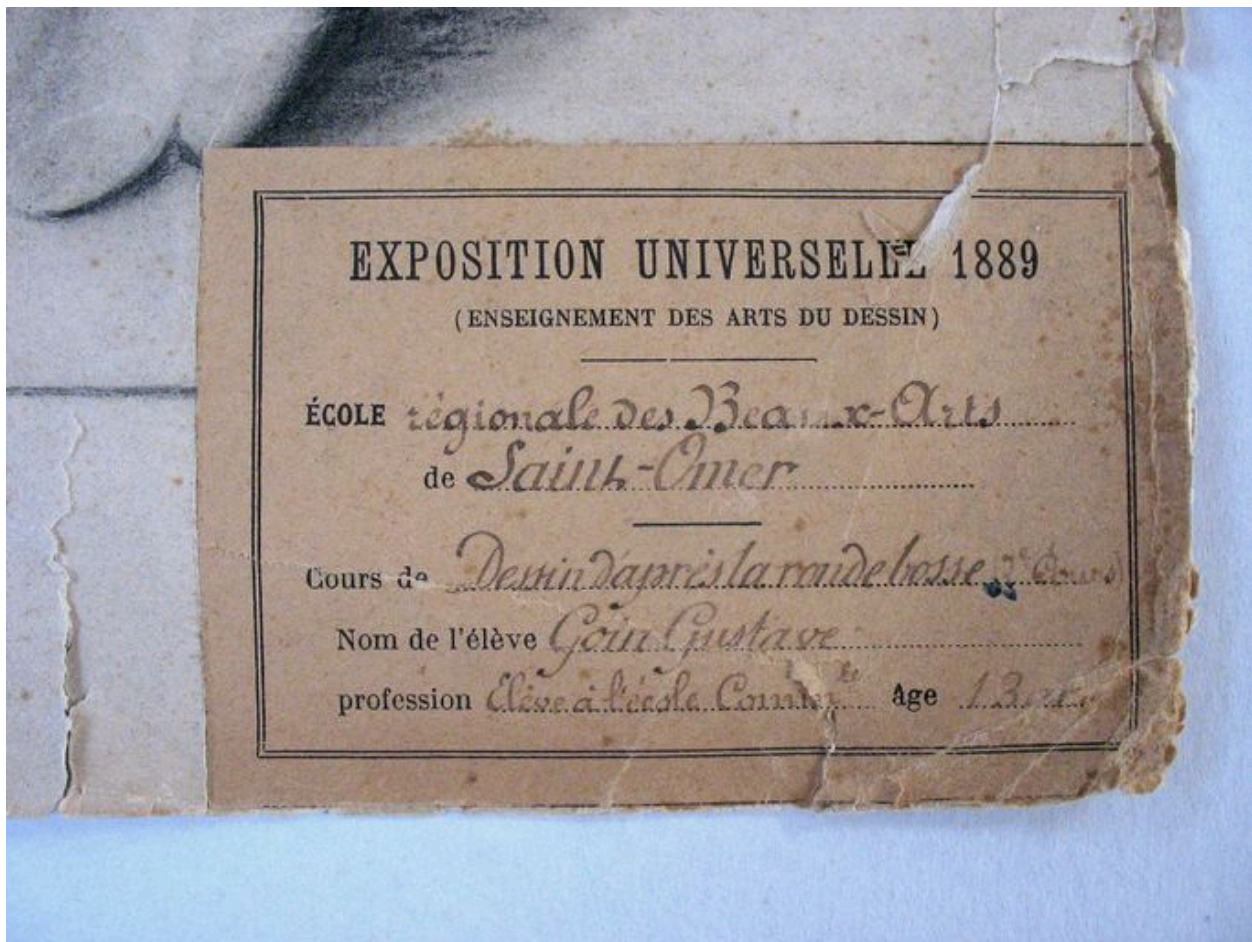 EXPOSITION UNIVERSELLE 1889
(ENSEIGNEMENT DES ARTS DU DESSIN)
ÉCOLE régionale des Beaux-Arts
de Saint-Omer
Cours de Dessin d'après la ronde bosse (2e Cours)
Nom de l'élève Goin Gustave
profession Elève à l'école Comm^le Age 13 ans